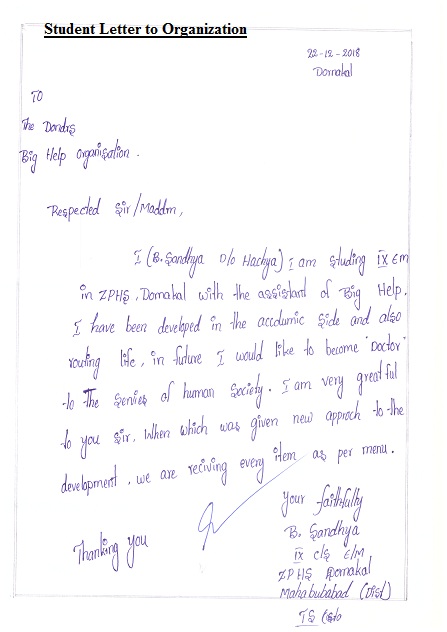 Student Letter to Organization
22-12-2018
Dornakal
TO
The Dondrs
Big Help organisation.
Respected Sir/Maddm,
I (B. Sandhya D/o Hachya) I am studing IX E/m
in ZPHS, Dornakal with the assistant of Big Help.
I have been developed in the accdumic side and also
routing life, in future I would like to become "Doctor"
to the Senvies of human Society. I am very greatful
to you sir, When which was given new approch to the
development. we are reciving every item as per menu.
Thanking you
Your faithfully
B. Sandhya
IX cls E/M
ZPHS Dornakal
Mahabubabad (Dist)
TS